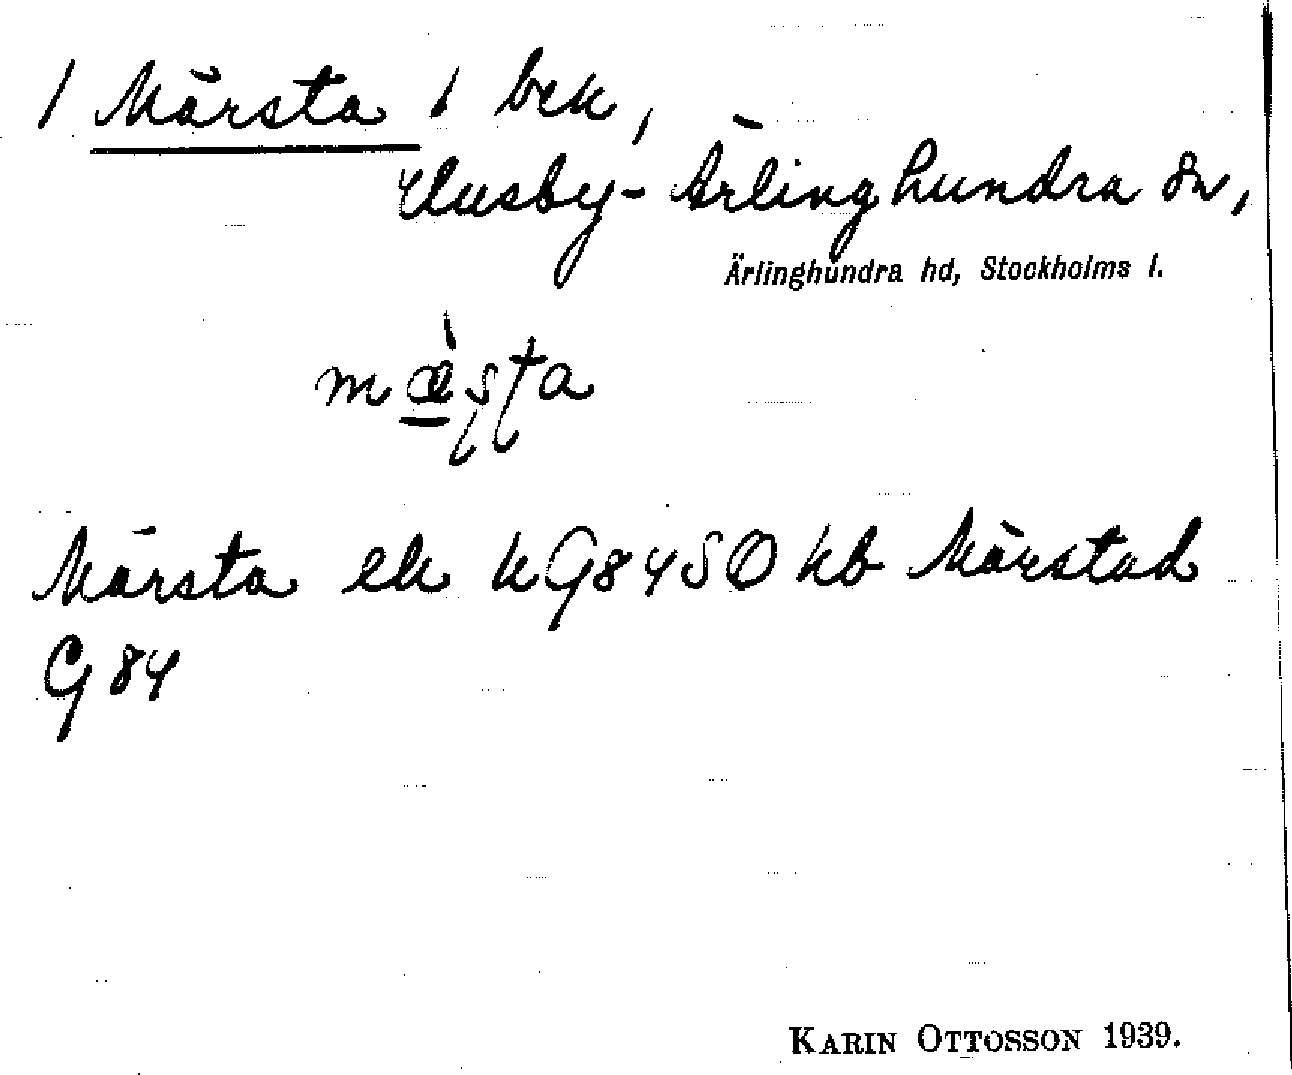 / Märsta / bek,
Husby-Ärlinghundra sn,
Ärlinghundra hd, Stockholms l.
mæ̀ṣṭa
Märsta ek kG84SO kb Märstad
G84
KARIN OTTOSSON 1939.